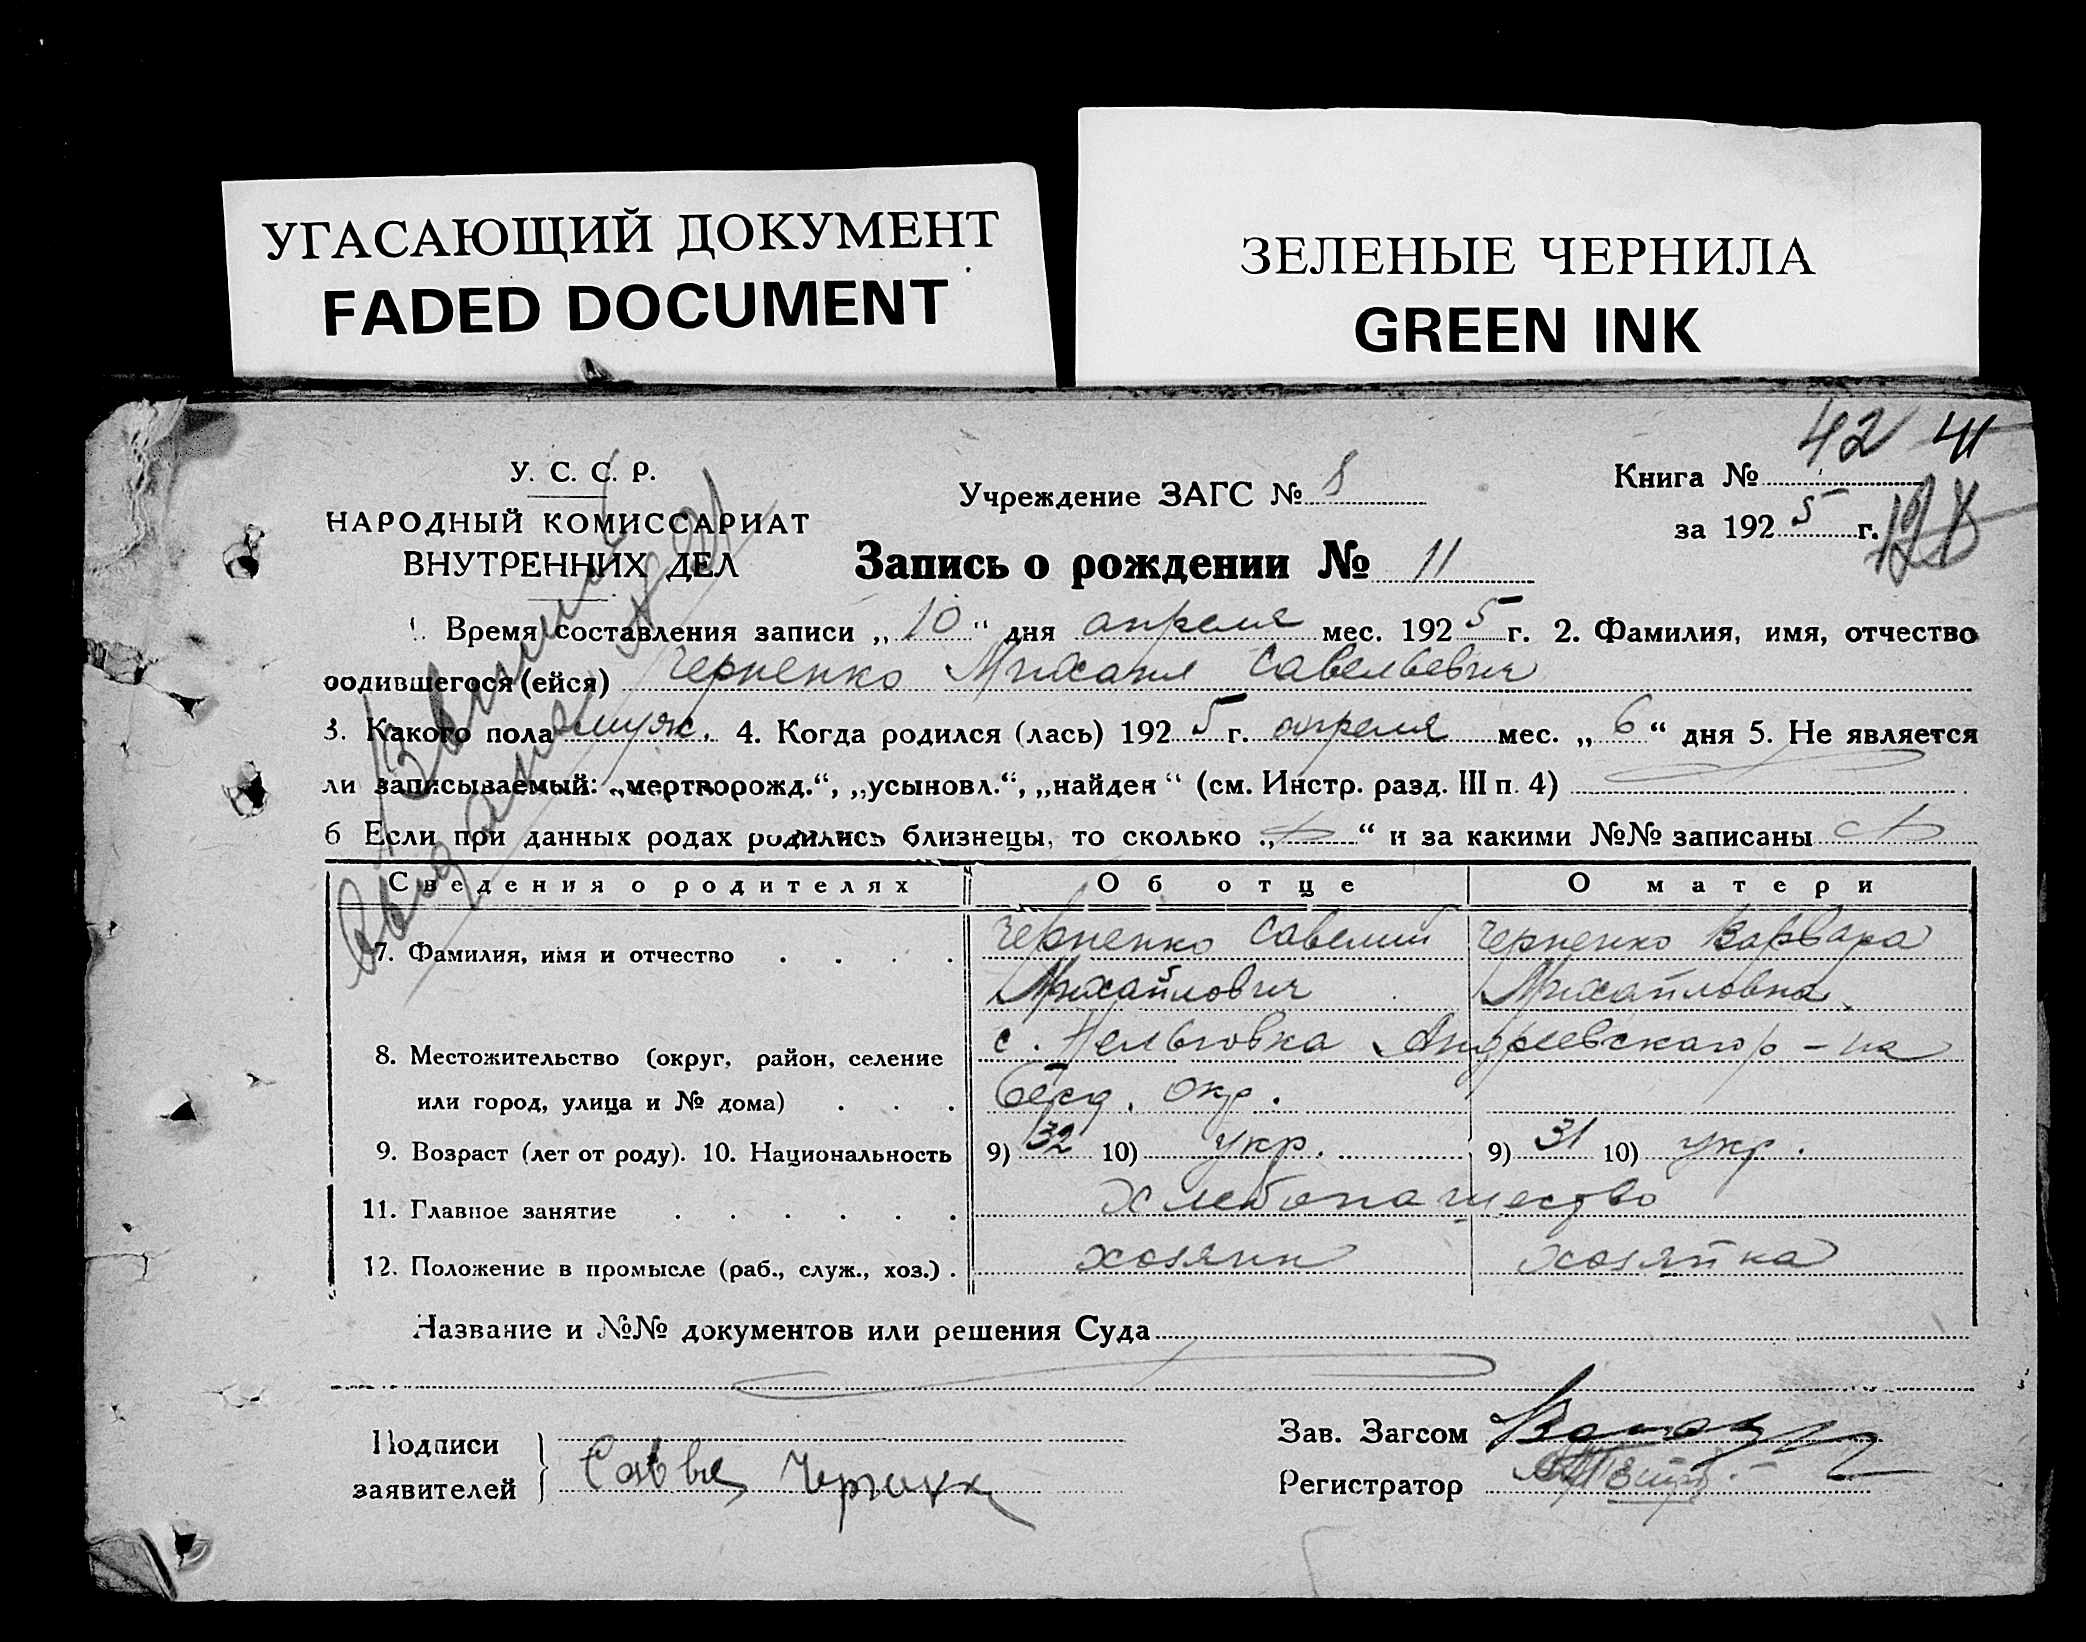 УГАСАЮЩИЙ ДОКУМЕНТ
FADED DOCUMENT
ЗЕЛЕНЫЕ ЧЕРНИЛА
GREEN INK
42 41
У. С. С. Р.
НАРОДНЫЙ КОМИССАРИАТ
ВНУТРЕННИХ ДЕЛ
Учреждение ЗАГС №
Книга №
за 1925 г.
Запись о рождении № 11
1. Время составления записи „10“ дня апреля мес. 1925 г. 2. Фамилия, имя, отчество
родившегося (ейся) Черненко Михаил Савельевич
3. Какого пола муж. 4. Когда родился (лась) 1925 г. апреля мес. „6“ дня 5. Не является
ли записываемый: „мертворожд.“, „усыновл.“, „найден“ (см. Инстр. разд. III п. 4)
6 Если при данных родах родились близнецы, то сколько „ “ и за какими №№ записаны
Сведения о родителях Об отце О матери
7. Фамилия, имя и отчество Черненко Савелий Черненко Варвара
Михайлович Михайловна
8. Местожительство (округ, район, селение с. Нельговка Андреевского р-на
или город, улица и № дома) Берд. окр.
9. Возраст (лет от роду). 10. Национальность 9) 32 10) укр. 9) 31 10) укр.
11. Главное занятие Хлебопашество
12. Положение в промысле (раб., служ., хоз.) хозяин хозяйка
Название и №№ документов или решения Суда
Подписи
заявителей
Зав. Загсом
Регистратор